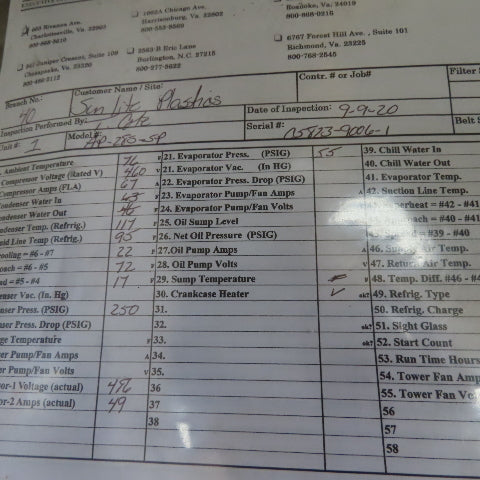 Roanoke, Va. 24019
800-868-0216
1092A Chicago Ave,
Harrisonburg, Va. 22802
800-553-8569
Charlottesville, Va. 22903
6767 Forest Hill Ave , Suite 101
Richmond, Va. 23225
800-768-2545
2563-B Eric Lane
Burlington, N.C. 27215
800-277-5622
Juniper Crescent, Suite 109
Chesapeake, Va. 23320
Customer Name / Site:
Contr. # or Job#
Filter
Branch No.: 40
Sun Lite Plastics
Date of Inspection: 9-9-20
Inspection Performed By:
Unit #: 1
Model#:
Serial #:
Belt
Ambient Temperature 76 F 21. Evaporator Press. (PSIG) 55 39. Chill Water In
Compressor Voltage (Rated V) 460 V 21. Evaporator Vac. (In HG) 40. Chill Water Out
Compressor Amps (FLA) 67 A 22. Evaporator Press. Drop (PSIG) 41. Evaporator Temp.
ondenser Water In F 23. Evaporator Pump/Fan Amps A 42. Suction Line Temp.
ondenser Water Out F 24. Evaporator Pump/Fan Volts perheat = #42 - #41
ondenser Temp. (Refrig.) 117 F 25. Oil Sump Level oach = #40 - #41
uid Line Temp (Refrig.) 95 F 26. Net Oil Pressure (PSIG) = #39 - #40
ooling = #6 - #7 22 F 27.Oil Pump Amps A 46. Air Temp.
oach = #6 - #5 72 F 28. Oil Pump Volts V 47. Return Air Temp.
ed = #5 - #4 17 F 29. Sump Temperature F 48. Temp. Diff. #46 - #4
nser Vac. (In. Hg) 30. Crankcase Heater ✓ ok? 49. Refrig. Type
nser Press. (PSIG) 250 31. 50. Refrig. Charge
nser Press. Drop (PSIG) 32. ok? 51. Sight Glass
ge Temperature F 33. ok? 52. Start Count
er Pump/Fan Amps A 34. 53. Run Time Hours
er Pump/Fan Volts V 35. 54. Tower Fan Amp
or-1 Voltage (actual) 36 55. Tower Fan Vo
or-2 Amps (actual) 49 37 56
38 57
58